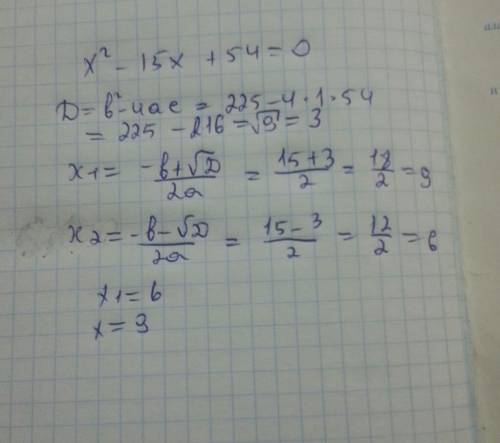 x² - 15x + 54 = 0
D = b² - 4ac = 225 - 4 · 1 · 54
= 225 - 216 = √9 = 3
x1 = (-b + √D)/2a = (15 + 3)/2 = 18/2 = 9
x2 = (-b - √D)/2a = (15 - 3)/2 = 12/2 = 6
x1 = 6
x = 9